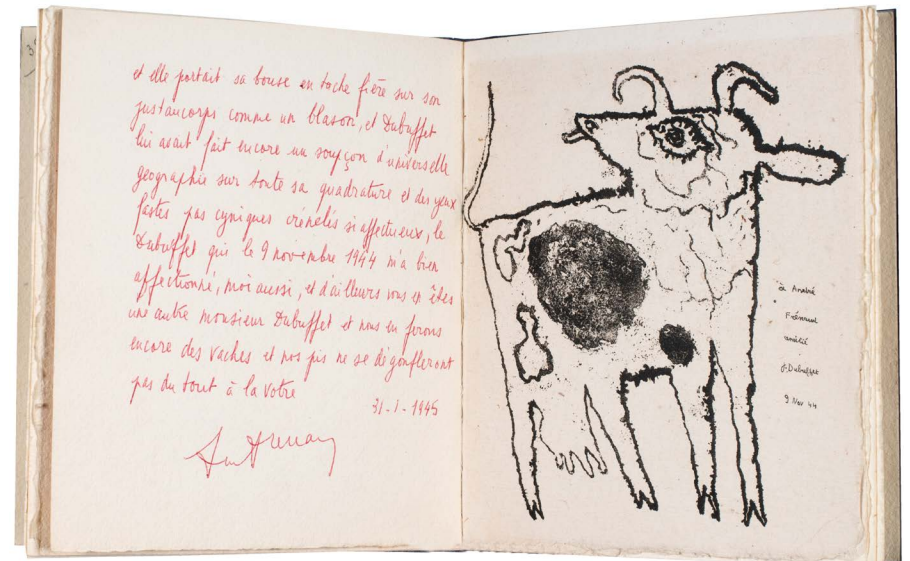 et elle portait sa bouse en toche fière sur son
justaucorps comme un blason, et Dubuffet
lui avait fait encore un soupçon d'universelle
géographie sur toute sa quadrature et des yeux
fastes pas cyniques crénelés si affectueux, le
Dubuffet qui le 9 novembre 1944 m'a bien
affectionné, moi aussi, et d'ailleurs vous en êtes
une autre monsieur Dubuffet et nous en ferons
encore des vaches et nos pis ne se dégonfleront
pas du tout à la votre
31-1-1945
à André
Frénaud
amitié
J. Dubuffet
9 Nov 44